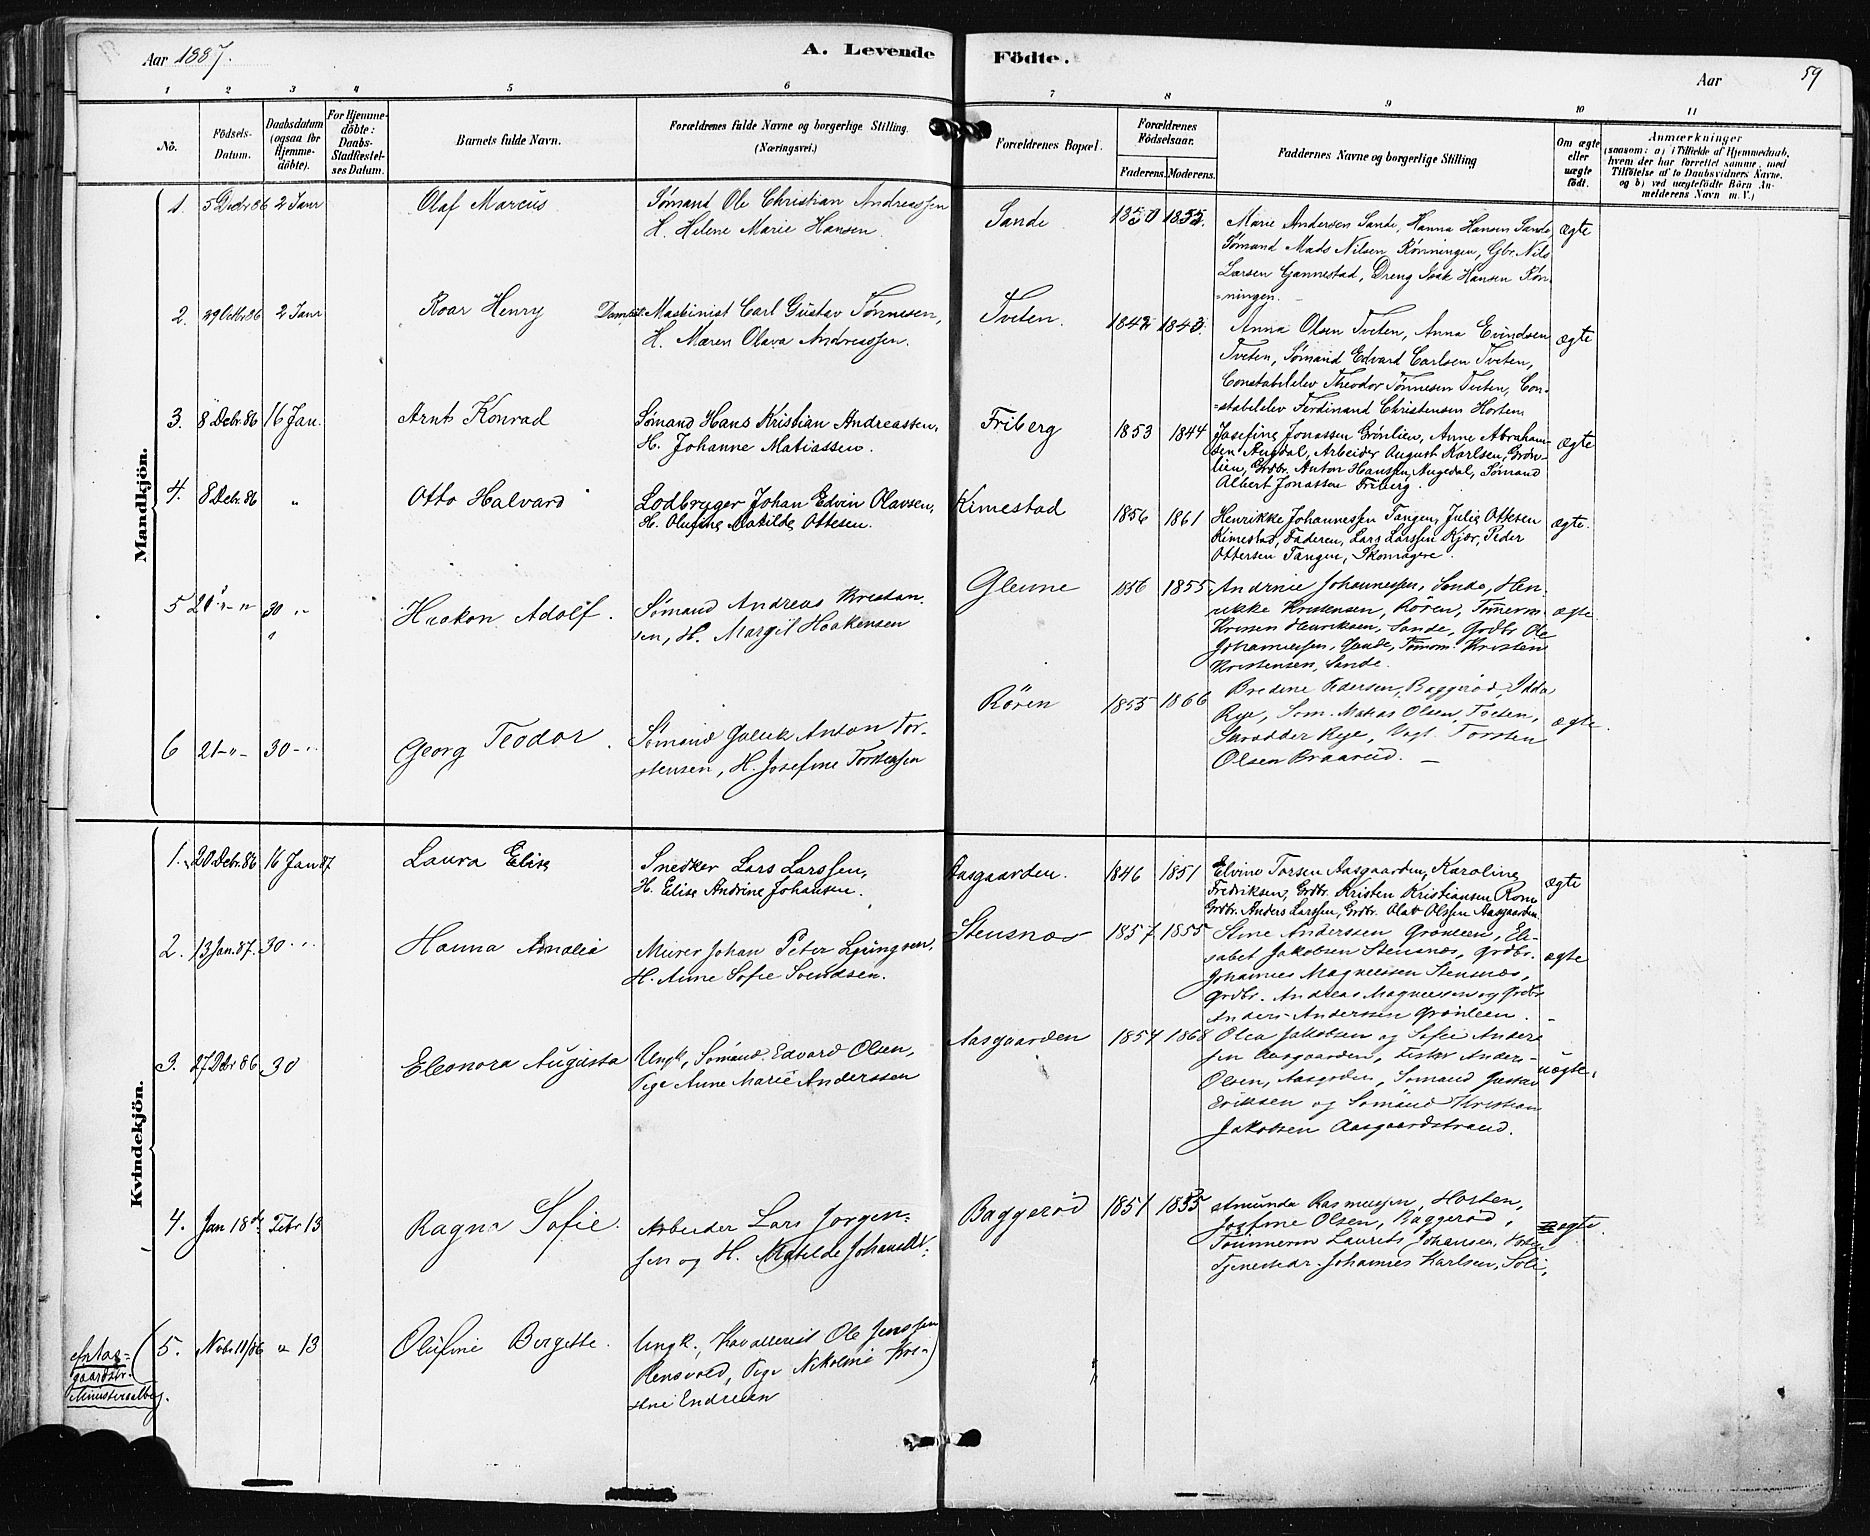 Aar 1887.
A. Levende Födte.
Aar
59
1 2 3 4 5 6 7 8 9 10 11
No.
Födsels-Datum.
Daabsdatum (ogsaa for Hjemme-döbte).
For Hjemme-döbte: Daabs-Stadfæstel-ses Datum.
Barnets fulde Navn.
Forældrenes fulde Navne og borgerlige Stilling.
(Næringsvei.)
Forældrenes Bopæl.
Forældrenes Födselsaar.
Faderens. Moderens.
Faddernes Navne og borgerlige Stilling
Om ægte eller uægte födt.
Anmærkninger
(saasom: a) i Tilfælde af Hjemmedaab,
hvem der har forrettet samme, med
Tilföielse af to Daabsvidners Navne,
og b) ved uægtefödte Börn An-
melderens Navn m. V.)
Mandkjön.
1. 5 Decbr 86 2 Janr
Olaf Marcus
Sømand Ole Christian Andreassen
H. Helene Marie Hansen
Sande
1850 1855.
Marie Andersen Sande, Hanna Hansen Sande,
Sømand Mads Nilsen Rønningen, Gbr. Nils
Larsen Gannestad, Dreng Isak Hansen Røn-
=ningen.
ægte
2. 29 Octbr 86 2 Janr
Roar Henry
Dampsk. Maskinist Carl Gustav Tønnesen,
H. Maren Olava Andreassen.
Tveten.
1842 1843.
Anna Olsen Tveten, Anna Evindsen
Tveten, Sømand Edvard Carlsen Tveten,
Constabelelev Theodor Tønnesen Tveten, Con-
=stabelelev Ferdinand Christensen Horten.
ægte
3. 8 Decbr. 86 16 Jan.
Arnt Konrad
Sömand Hans Kristian Andreassen,
H. Johanne Matiassen.
Friberg
1853 1844
Josefine Jonassen Grönlien, Anne Abraham-
sen Augdal, Arbeider August Karlsen, Grön-
lien, Grdbr. Anton Hansen, Augedal, Sömand
Albert Jonassen Friberg.
ægte
4. 8 Debr. 86 "
Otto Halvard
Lodbryger Johan Edvin Olavsen,
H. Olufine Matilde Ottesen.
Kimestad
1856 1861
Henrikke Johannessen Tangen, Julie Ottesen
Kimestad, Faderen, Lars Larssen Kjær, Peder
Ottersen Tangen, Skomagere.
ægte.
5 21 " " 30 "
Haakon Adolf.
Sömand Andreas Kristan-
sen, H. Margit Haakensen
Glenne
1856 1855
Andrine Johannessen, Sande, Hen-
rikke Kristensen, Rören, Tömerm.
Kristen Henriksen, Sande, Grdbr. Ole
Johannessen, Sande, Tömm. Kristen
Kristensen, Sande.
ægte.
6 21 - " - 30 - "
Georg Teodor.
Sömand Anton Tor-
stensen, H. Josefine Torstensen
Rören
1855 1866
Bredine Pedersen, Baggeröd, Idda
Rye, Söm. Matias Olsen, Tveten,
Skrædder Rye, Torsten
Olsen Braarud. —
ægte.
Kvindekjön.
1. 20 Debr. 86 16 Jan 87
Laura Elise
Snedker Lars Larssen,
H. Elise Andrine Johansen.
Aasgaarden.
1846 1851
Elvine Torsen Aasgaarden, Karoline
Fredriksen, Grdbr. Kristen Kristiansen Rom
Grdbr. Anders Larssen, Grdbr. Olaf Olssen Aasgaarden.
ægte
2. 13 Jan. 87. 30 "
Hanna Amalia
Murer Johan Peter Ljungren,
H. Anne Sofie Svendsen.
Stensnæs
1857 1855
Stine Anderssen Grönlien, Eli-
sabet Jakobsen Stensnæs, Grdbr.
Johannes Magnussen Stensnæs,
Grdbr. Andreas Magnussen og Grdbr
Anders Anderssen Grönlien.
ægte
3. 27 Debr 86 30
Eleonora Augusta
Ungk., Sömand Edvard Olsen,
Pige Anne Marie Anderssen
Aasgaarden
1854 1868
Olea Jakobsen og Sofie Anders-
sen Aasgaarden, Anders
Olsen, Aasgaarden, Sömand Gustav
Eriksen og Sömand Kristian
Jakobsen Aasgaardstrand.
uægte.
4. Jan 18de Febr 13
Ragna Sofie.
Arbeider Lars Jörgen-
sen og H. Matilde
Baggeröd
1851 1855
Amunda Rasmussen, Horten,
Josefine Olsen, Baggeröd,
Tömmerm Laurits Johansen,
Tjenestedr. Johannes Karlsen, Soli.
ægte.
5. Novbr 11/86 " 13
Olufine Bergitte.
Ungk., Kavallerist Ole Jenssen
Rensvold, Pige Nikoline Kri-
stine Endresen